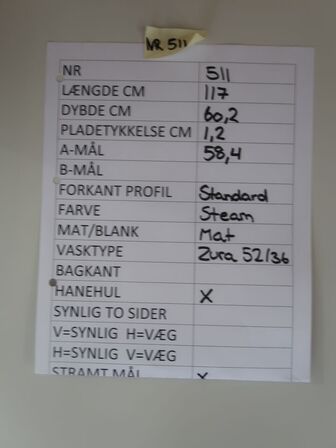 NR 511
NR 511
LÆNGDE CM 117
DYBDE CM 60,2
PLADETYKKELSE CM 1,2
A-MÅL 58,4
B-MÅL
FORKANT PROFIL Standard
FARVE Steam
MAT/BLANK Mat
VASKTYPE Zura 52/36
BAGKANT
HANEHUL X
SYNLIG TO SIDER
V=SYNLIG H=VÆG
H=SYNLIG V=VÆG
STRAMT MÅL X